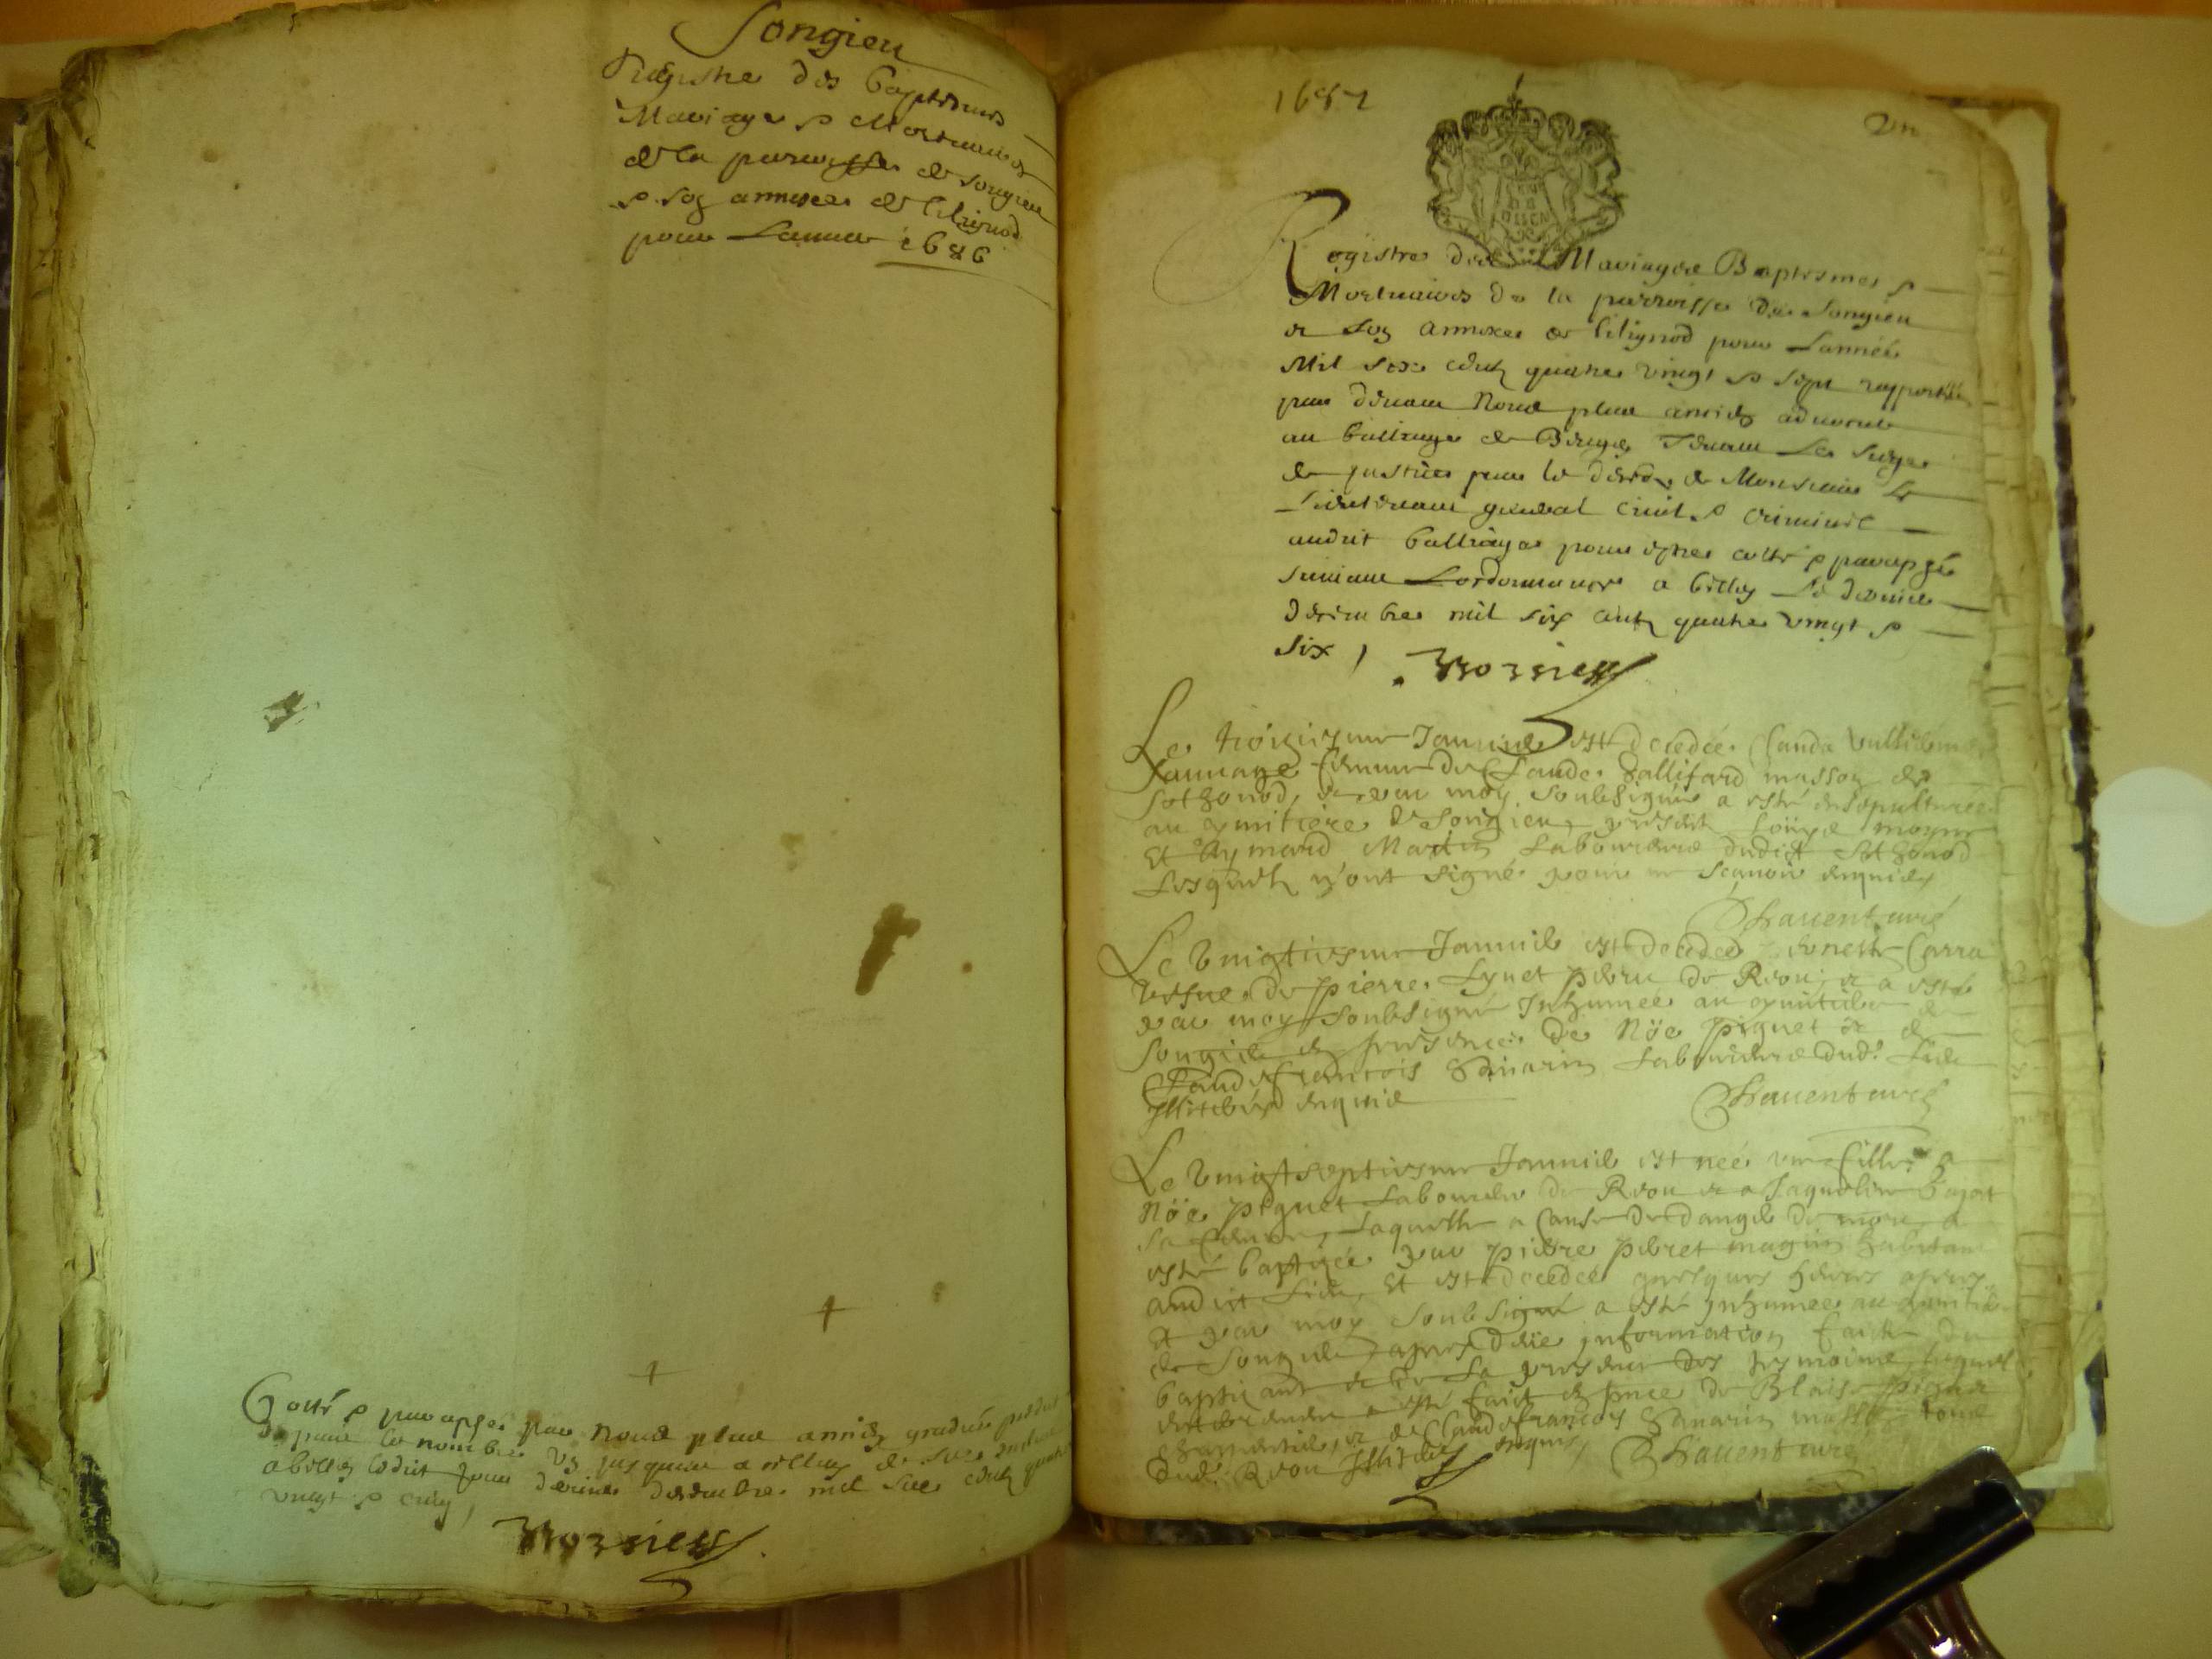 Songieu
Registre des baptesmes
Mariages & Mortuaires
de la paroisse de Songieu
& son annexe de lilignod
pour Lannee 1686
Cotté & paraphé par Nous plus ancien gradué
depuis le nombre un jusques a
a billey ledit jour dernier decembre mil six cents quatre
vingt & cinq
1687
un
Registre des Mariages Baptesmes &
Mortuaires de la parroisse de Songieu
et son annexe de lilignod pour Lannée
Mil six cents quatre vingt & sept rapporté
par devant Nous plus ancien advocat
au balliage de Bugey tenant Le siege
de justice pour le deceds de Monsieur Le
Lieutenant general civil & criminel
audit balliage pour estre cotté & paraphé
suivant Lordonnance a billey Le dernier
decembre mil six cents quatre vingt &
six
Le troisiesme Janvier est decedée Clauda
femme de Claude Gallifard masson de
Sothonod, et par moy soubsigné a esté ensepulturée
au cymitiere de Songieu, present Loüys moyne
Et Aymard Martin Laboureurs dudict Sothonod
Lesquels n'ont signé pour ne scavoir enquis
Chauent curé
Le vingtiesme Janvier est decedée Carra
vefve de Pierre Lynet de Rvou, et a esté
par moy soubsigné Inhumée au cymitiere de
Songieu en presence de Nöe Piguet et de
Claude François Laboureurs dud. Lieu
Illiterés enquis
Chauent curé
Le vingt septiesme Janvier est née une fille a
Nöe Piguet Laboureur de Rvou et a Jaqueline
sa femme, Laquelle a cause de danger de mort, a
esté baptizée par Pierre Peret habitant
audict Lieu, Et est decedée quelques heures apres,
Et par moy soubsigné a esté Inhumée au cymitiere
de Songieu apres deüe information faicte du
baptizant et de La presence des tesmoins, lequel
enterrement a esté faict en presence de Blaise Piguet
charpentier, et de Claude françois masson tous
dud. Rvou Illiterés enquis
Chauent curé